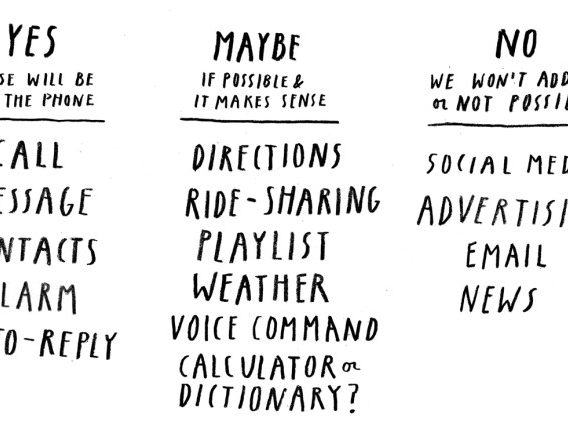 YES
SE WILL BE
THE PHONE
CALL
ESSAGE
NTACTS
LARM
TO-REPLY
MAYBE
IF POSSIBLE &
IT MAKES SENSE
DIRECTIONS
RIDE-SHARING
PLAYLIST
WEATHER
VOICE COMMAND
CALCULATOR or
DICTIONARY?
NO
WE WON'T ADD
or NOT POSSI
SOCIAL MED
ADVERTISI
EMAIL
NEWS